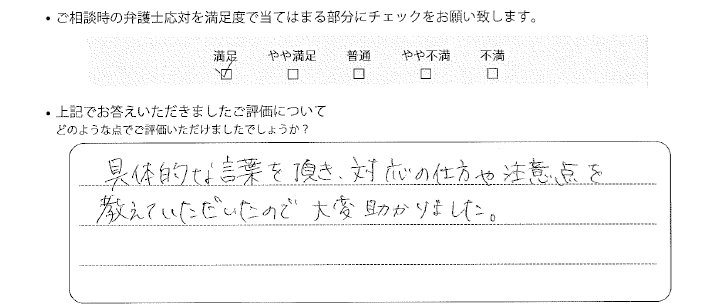 ・ご相談時の弁護士応対を満足度で当てはまる部分にチェックをお願い致します。
満足 やや満足 普通 やや不満 不満
☑ □ □ □ □
・上記でお答えいただきましたご評価について
どのような点でご評価いただけましたでしょうか？
具体的な言葉を頂き、対応の仕方や注意点を
教えていただいたので大変助かりました。